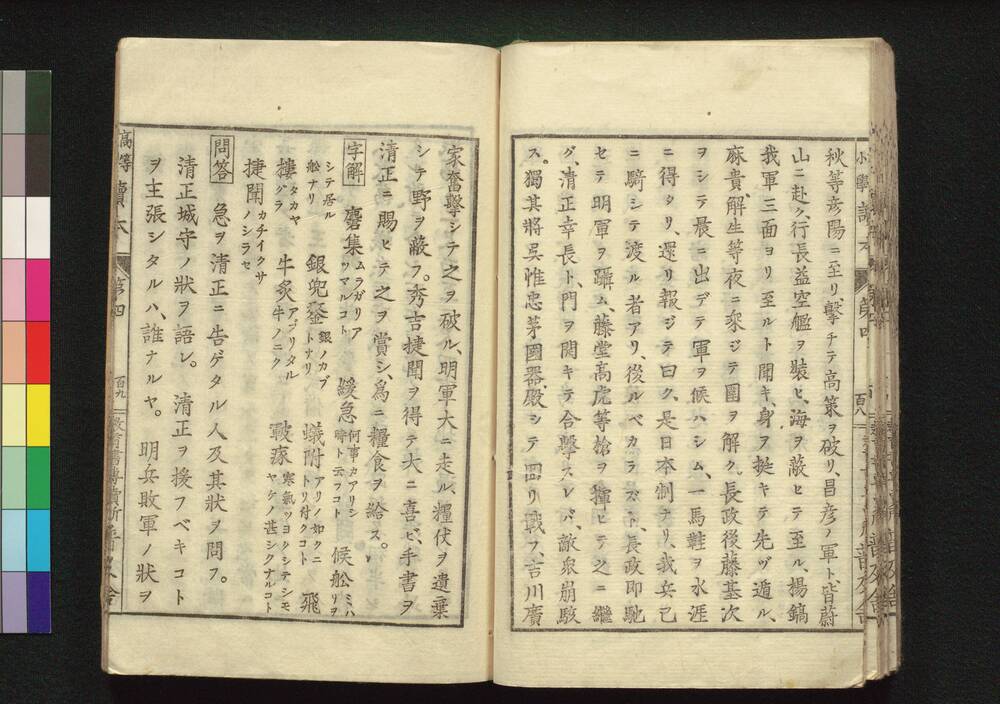 秋等彦陽ニ至リ、擊チテ高策ヲ破リ、昌彦ノ軍ト皆蔚
山ニ赴ク、行長益空艦ヲ裝ヒ、海ヲ蔽ヒテ至ル、楊鎬
我軍三面ヨリ至ルト聞キ、身ヲ挺キテ先ヅ遁ル、
麻貴、解生等夜ニ乘ジテ圍ヲ解ク、長政後藤基次
ヲシテ晨ニ出デテ軍ヲ候ハシム、一馬鞋ヲ水涯
ニ得タリ、還リ報ジテ曰ク、是日本制ナリ、我兵已
ニ騎シテ渡ル者アリ、後ルベカラズト、長政卽馳
セテ明軍ヲ躡ム、藤堂高虎等槍ヲ揮ヒテ之ニ繼
グ、清正幸長ト、門ヲ開キテ合擊スレバ、敵衆崩駭
ス。獨其將吳惟忠茅國器、殿シテ囘リ戰フ、吉川廣
家奮擊シテ之ヲ破ル、明軍大ニ走ル、糧仗ヲ遺棄
シテ野ヲ蔽フ。秀吉捷聞ヲ得テ大ニ喜ビ、手書ヲ
清正ニ賜ヒテ之ヲ賞シ、爲ニ糧食ヲ給ス。
字解 麕集 ムラガリアツマルコト 緩急 何事カアリシ時ト云フコト 候舩 ミハリヲ
シテ居ル舩ナリ 銀兜鍪 銀ノカブトナリ 蟻附 アリノ如クニトリ付クコト 飛
樓 タカヤグラ 牛炙 アブリタル牛ノニク 皸瘃 寒氣ツヨクシテシモヤケノ甚シクナルコト
捷聞 カチイクサノシラセ
問答 急ヲ清正ニ告ゲタル人及其狀ヲ問フ。
清正城守ノ狀ヲ語レ。 清正ヲ援フベキコト
ヲ主張シタルハ、誰ナルヤ。 明兵敗軍ノ狀ヲ
高等讀本 第四 百九
小學讀本 第四 百八